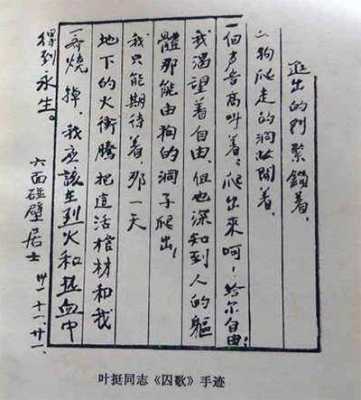 進出的门緊鎖着,
狗爬走的洞敞開着,
一個声音高叫着:爬出來呵!给尔自由!
我渴望着自由,但也深知到人的軀
體那能由狗的洞子爬出!
我只能期待着,那一天
地下的火衝騰把這活棺材和我
一齊燒掉,我應該在烈火和热血中
得到永生。
六面碰壁居士 卅一.十一.廿一.
叶挺同志《囚歌》手迹